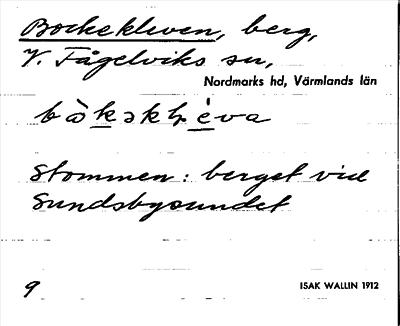 Bockekleven, berg,
V. Fågelviks sn,
Nordmarks hd, Värmlands län
Stommen: berget vid
Sundsbysundet
9
ISAK WALLIN 1912